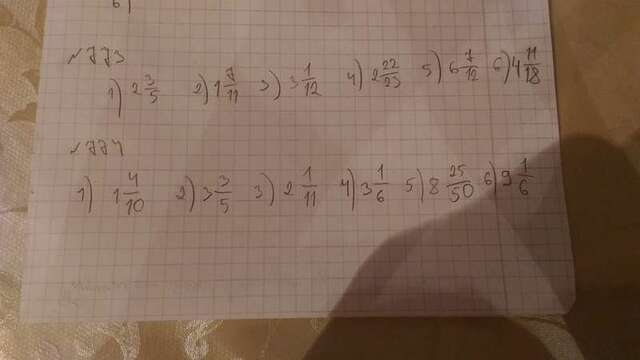 б)
№773
1) 2 3/5 2) 1 7/11 3) 3 1/12 4) 2 22/23 5) 6 7/12 6) 4 11/18
№774
1) 1 4/10 2) 3 3/5 3) 2 1/11 4) 3 1/6 5) 8 25/50 6) 9 1/6